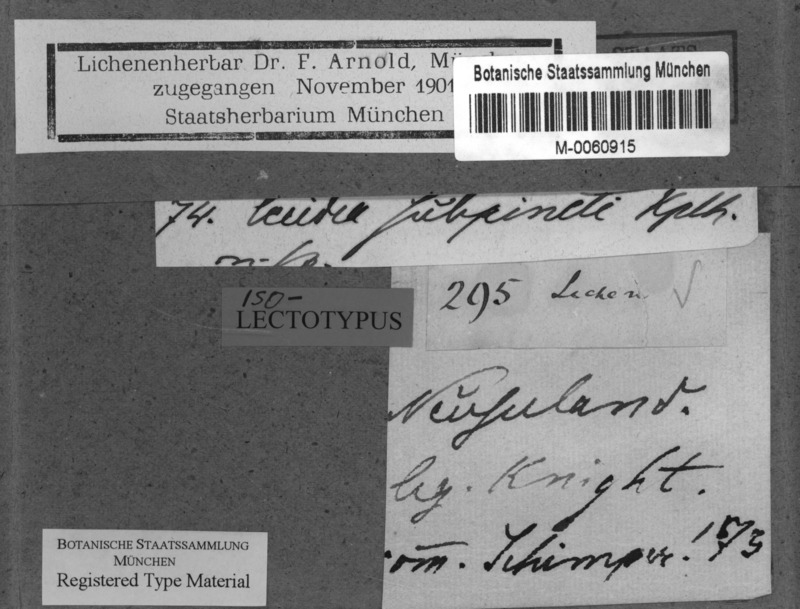 Lichenenherbar Dr. F. Arnold,
zugegangen November 1901
Staatsherbarium München
Botanische Staatssammlung München
M-0060915
74. Lecidea subpineti Kplh.
n. sp.
295 Lichen
ISO-
LECTOTYPUS
Neuseeland.
leg. Knight.
com. Schimper!
BOTANISCHE STAATSSAMMLUNG
MÜNCHEN
Registered Type Material